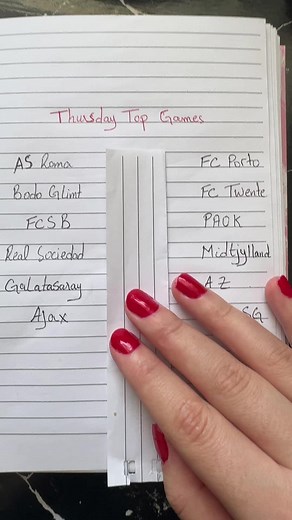 Thursday Top Games
AS Roma FC Porto
Bodo Glimt FC Twente
FCSB PAOK
Real Sociedad Midtjylland
Galatasaray AZ
Ajax SG